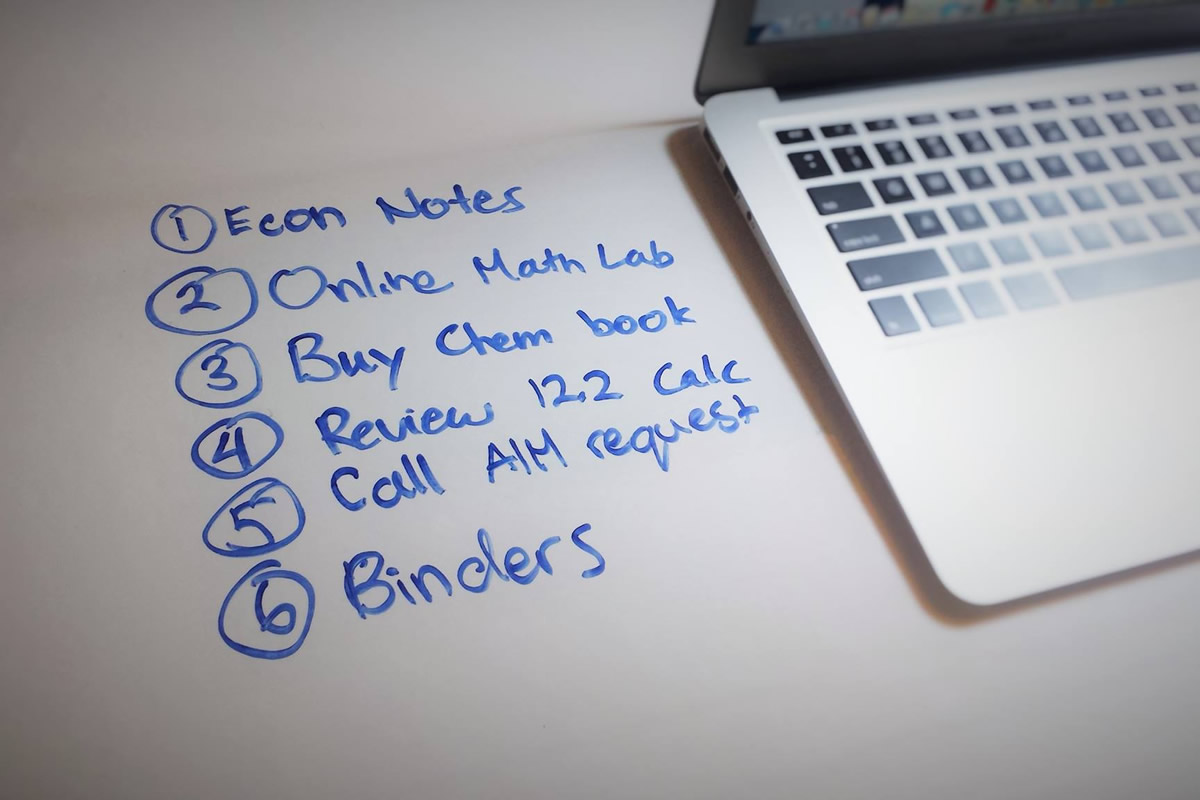 1 Econ Notes
2 Online Math Lab
3 Buy Chem book
4 Review 12.2 Calc
5 Call AIM request
6 Binders